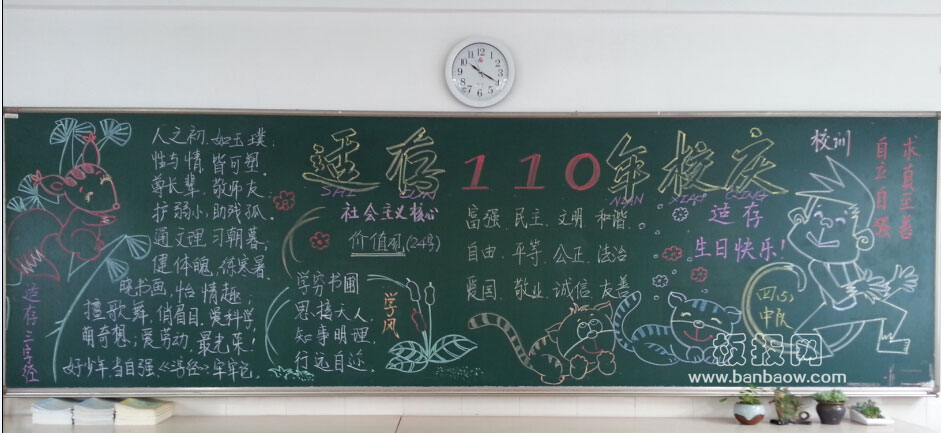 适存110年校庆
SHI CUN
NIAN XIAO QING
适存三字经
人之初，如玉璞，
性与情，皆可塑，
尊长辈，敬师友，
护弱小，助残孤，
通文理，习朝暮，
健体魄，练寒暑，
晓书画，怡情趣，
擅歌舞，俏眉目，爱科学，
萌奇想，爱劳动，最光荣！
好少年，当自强，《三字经》牢牢记。
社会主义核心
价值观(24字)
富强、民主、文明、和谐、
自由、平等、公正、法治
爱国、敬业、诚信、友善
学风
学穷书圃
思接天人
知事明理
行远自迩
适存
生日快乐！
校训
求真至善
自立自强
中队
板报网
www.banbaow.com
12
1
2
3
4
5
6
7
8
9
10
11